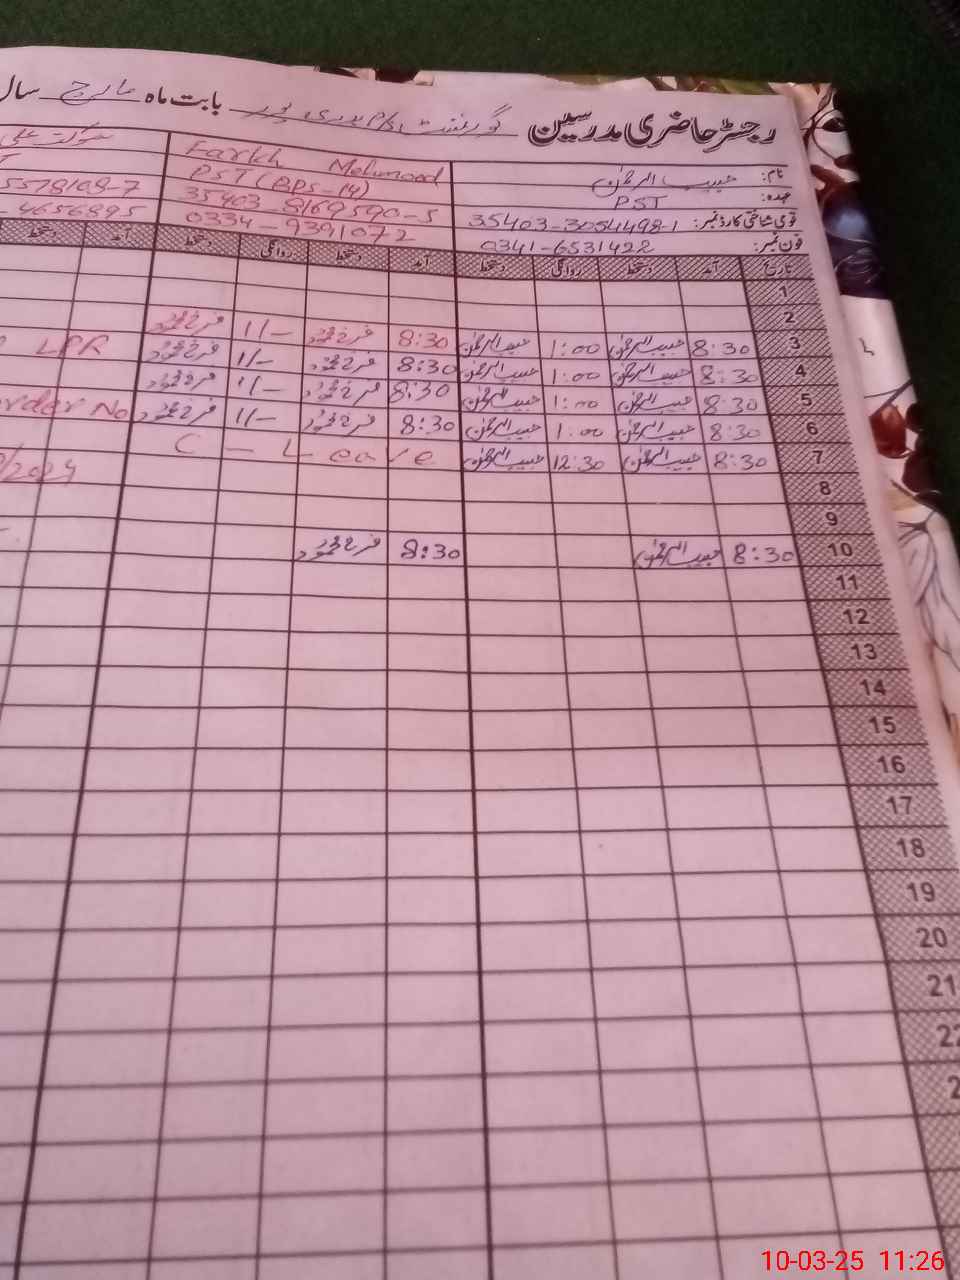 رجسٹر حاضری مدرسین گورنمنٹ P/S پور بابت ماہ مارچ سال
نام: حبیب الرحمٰن Farkh Mehmood شوکت علی
عہدہ: PST PST (BPS-14)
قومی شناختی کارڈ نمبر: 35403-3054498-1 35403-8169590-5 5578108-7
فون نمبر: 0341-6531422 0334-9391072 4656895
تاریخ آمد دستخط روانگی دستخط آمد دستخط روانگی دستخط آمد دستخط
1
2
3 8:30 حبیب الرحمٰن 1:00 حبیب الرحمٰن 8:30 فرخ محمود 1/- فرخ محمود
4 8:30 حبیب الرحمٰن 1:00 حبیب الرحمٰن 8:30 فرخ محمود 1/- فرخ محمود LPR
5 8:30 حبیب الرحمٰن 1:00 حبیب الرحمٰن 8:30 فرخ محمود 1/- فرخ محمود
6 8:30 حبیب الرحمٰن 1:00 حبیب الرحمٰن 8:30 فرخ محمود 1/- فرخ محمود order No
7 8:30 حبیب الرحمٰن 12:30 حبیب الرحمٰن C - Leave
/2024
8
9
10 8:30 حبیب الرحمٰن 8:30 فرخ محمود
11
12
13
14
15
16
17
18
19
20
21
22
2
10-03-25 11:26